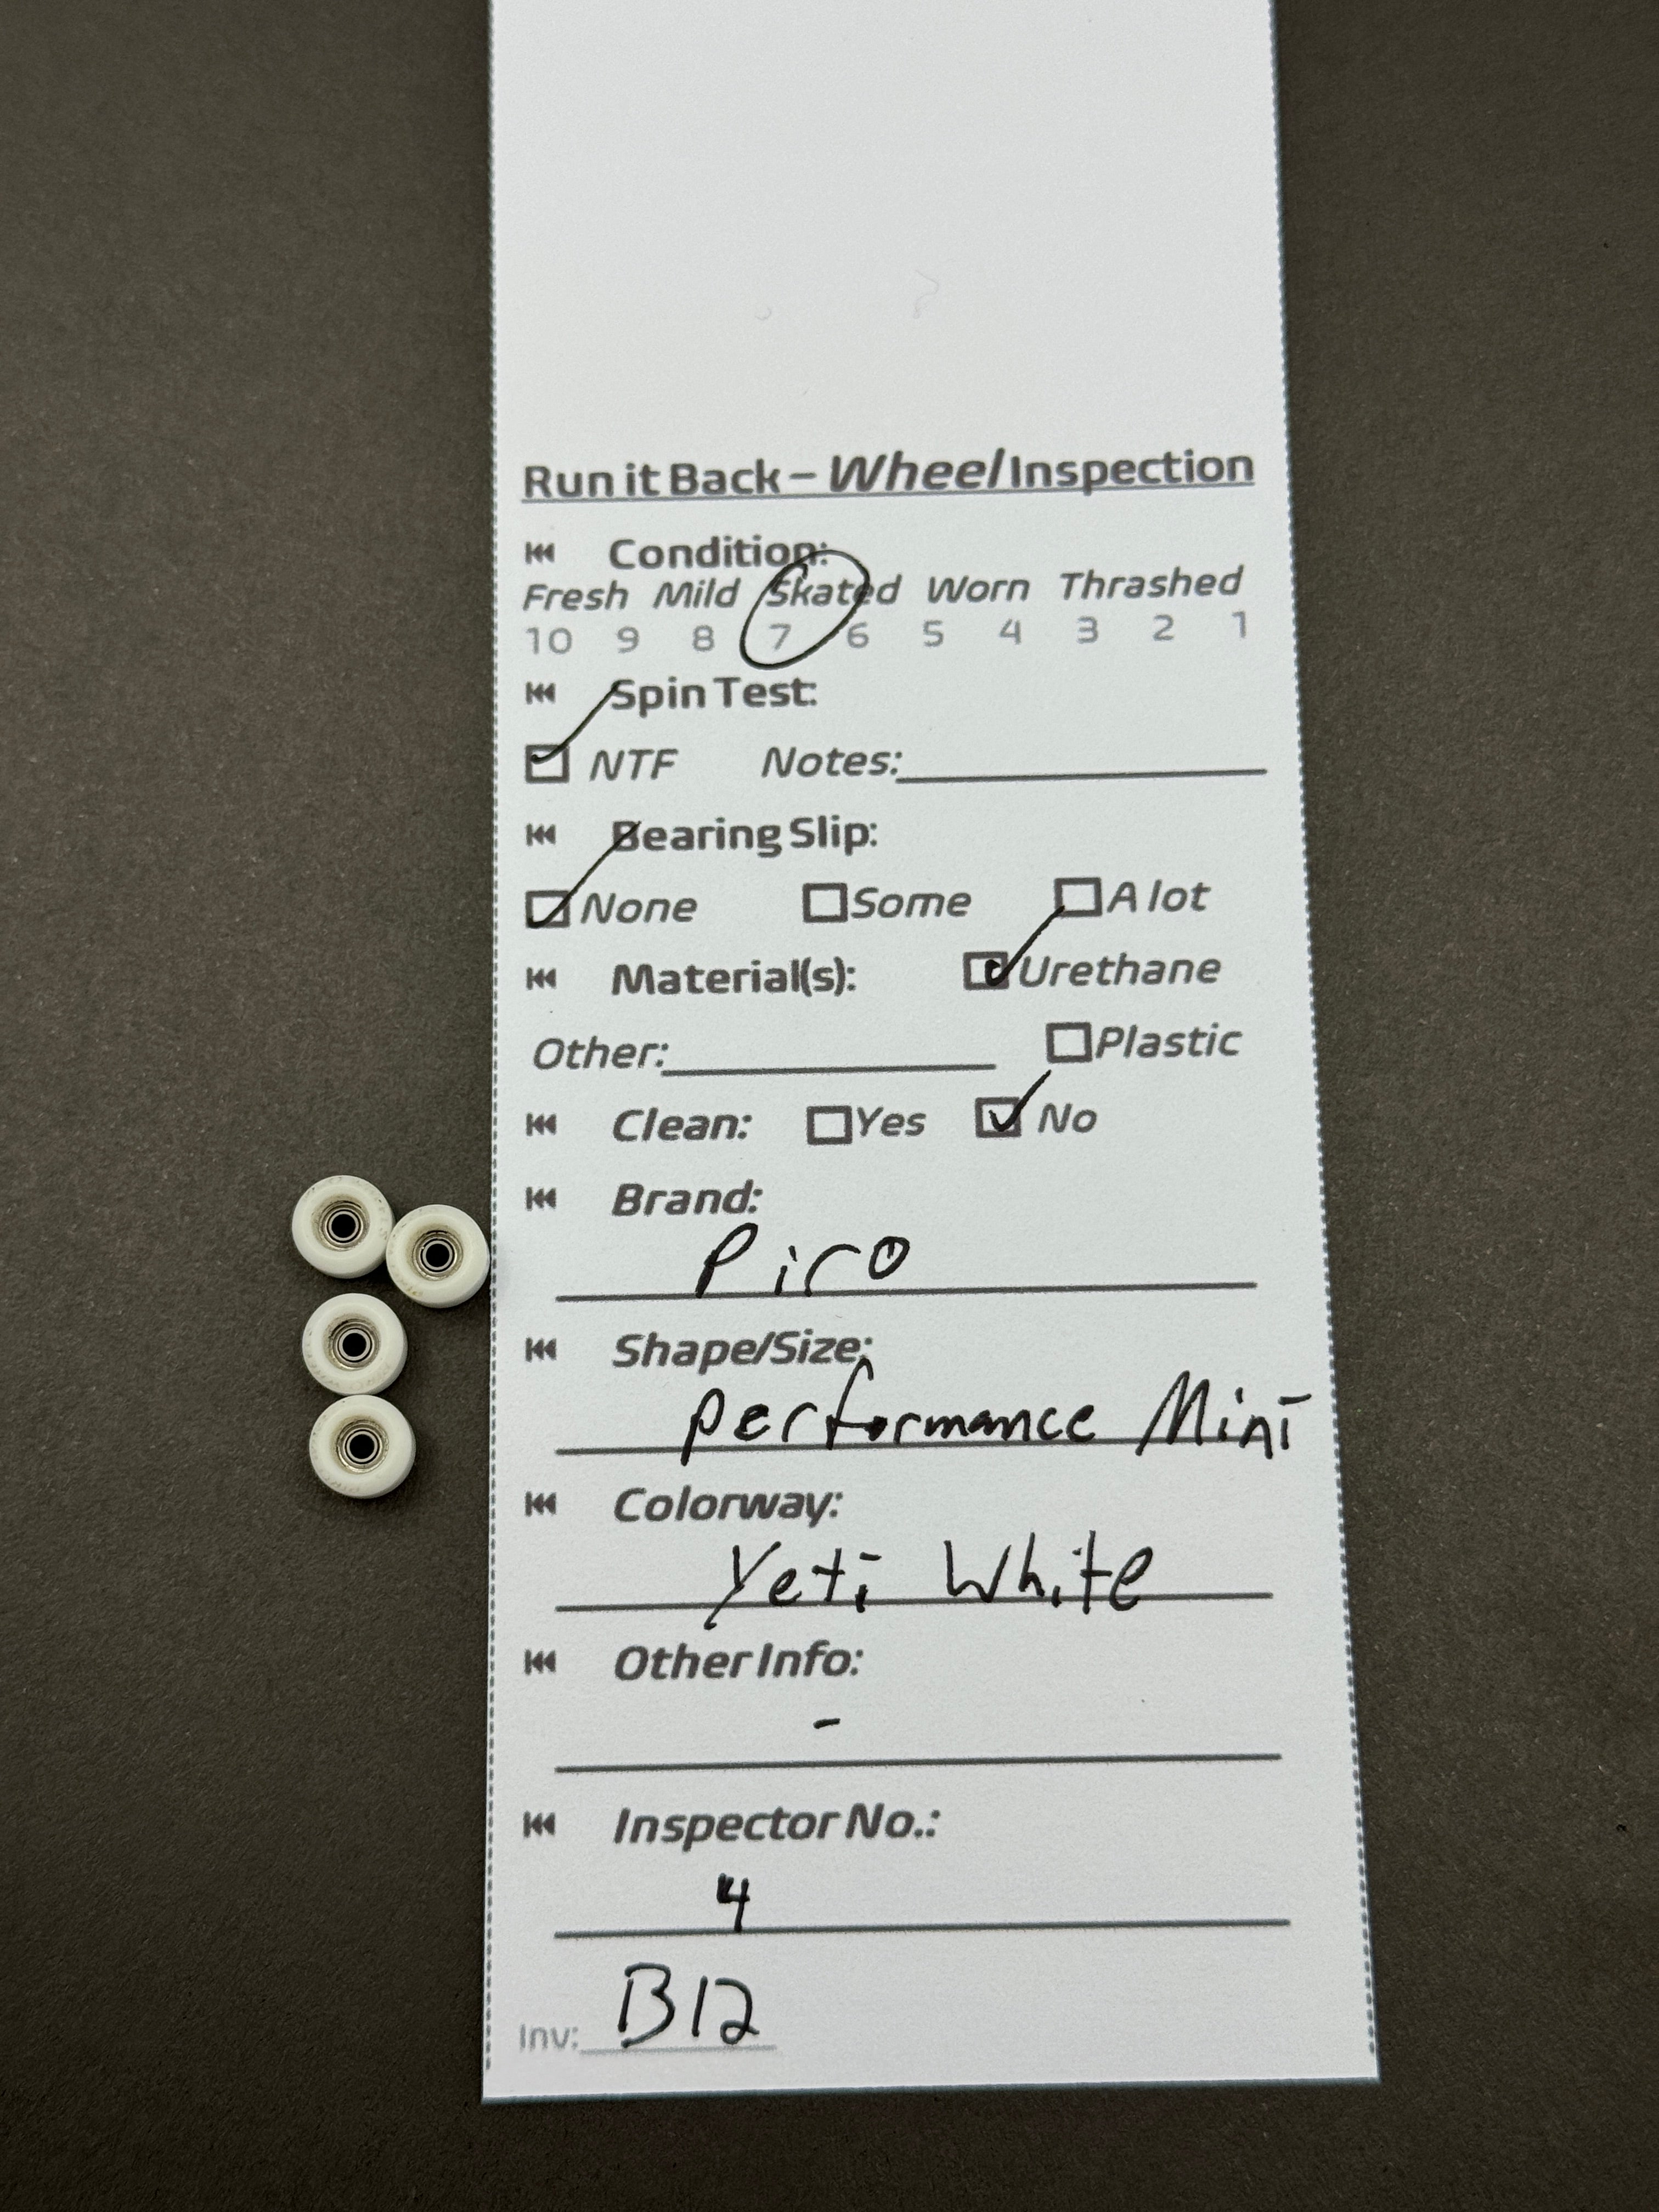 Run it Back – Wheel Inspection
Condition:
Fresh Mild Skated Worn Thrashed
10 9 8 7 6 5 4 3 2 1
Spin Test:
NTF Notes:
Bearing Slip:
None Some A lot
Material(s): Urethane
Other: Plastic
Clean: Yes No
Brand:
Piro
Shape/Size:
performance Mini
Colorway:
Yeti White
Other Info:
-
Inspector No.:
4
Inv: B12